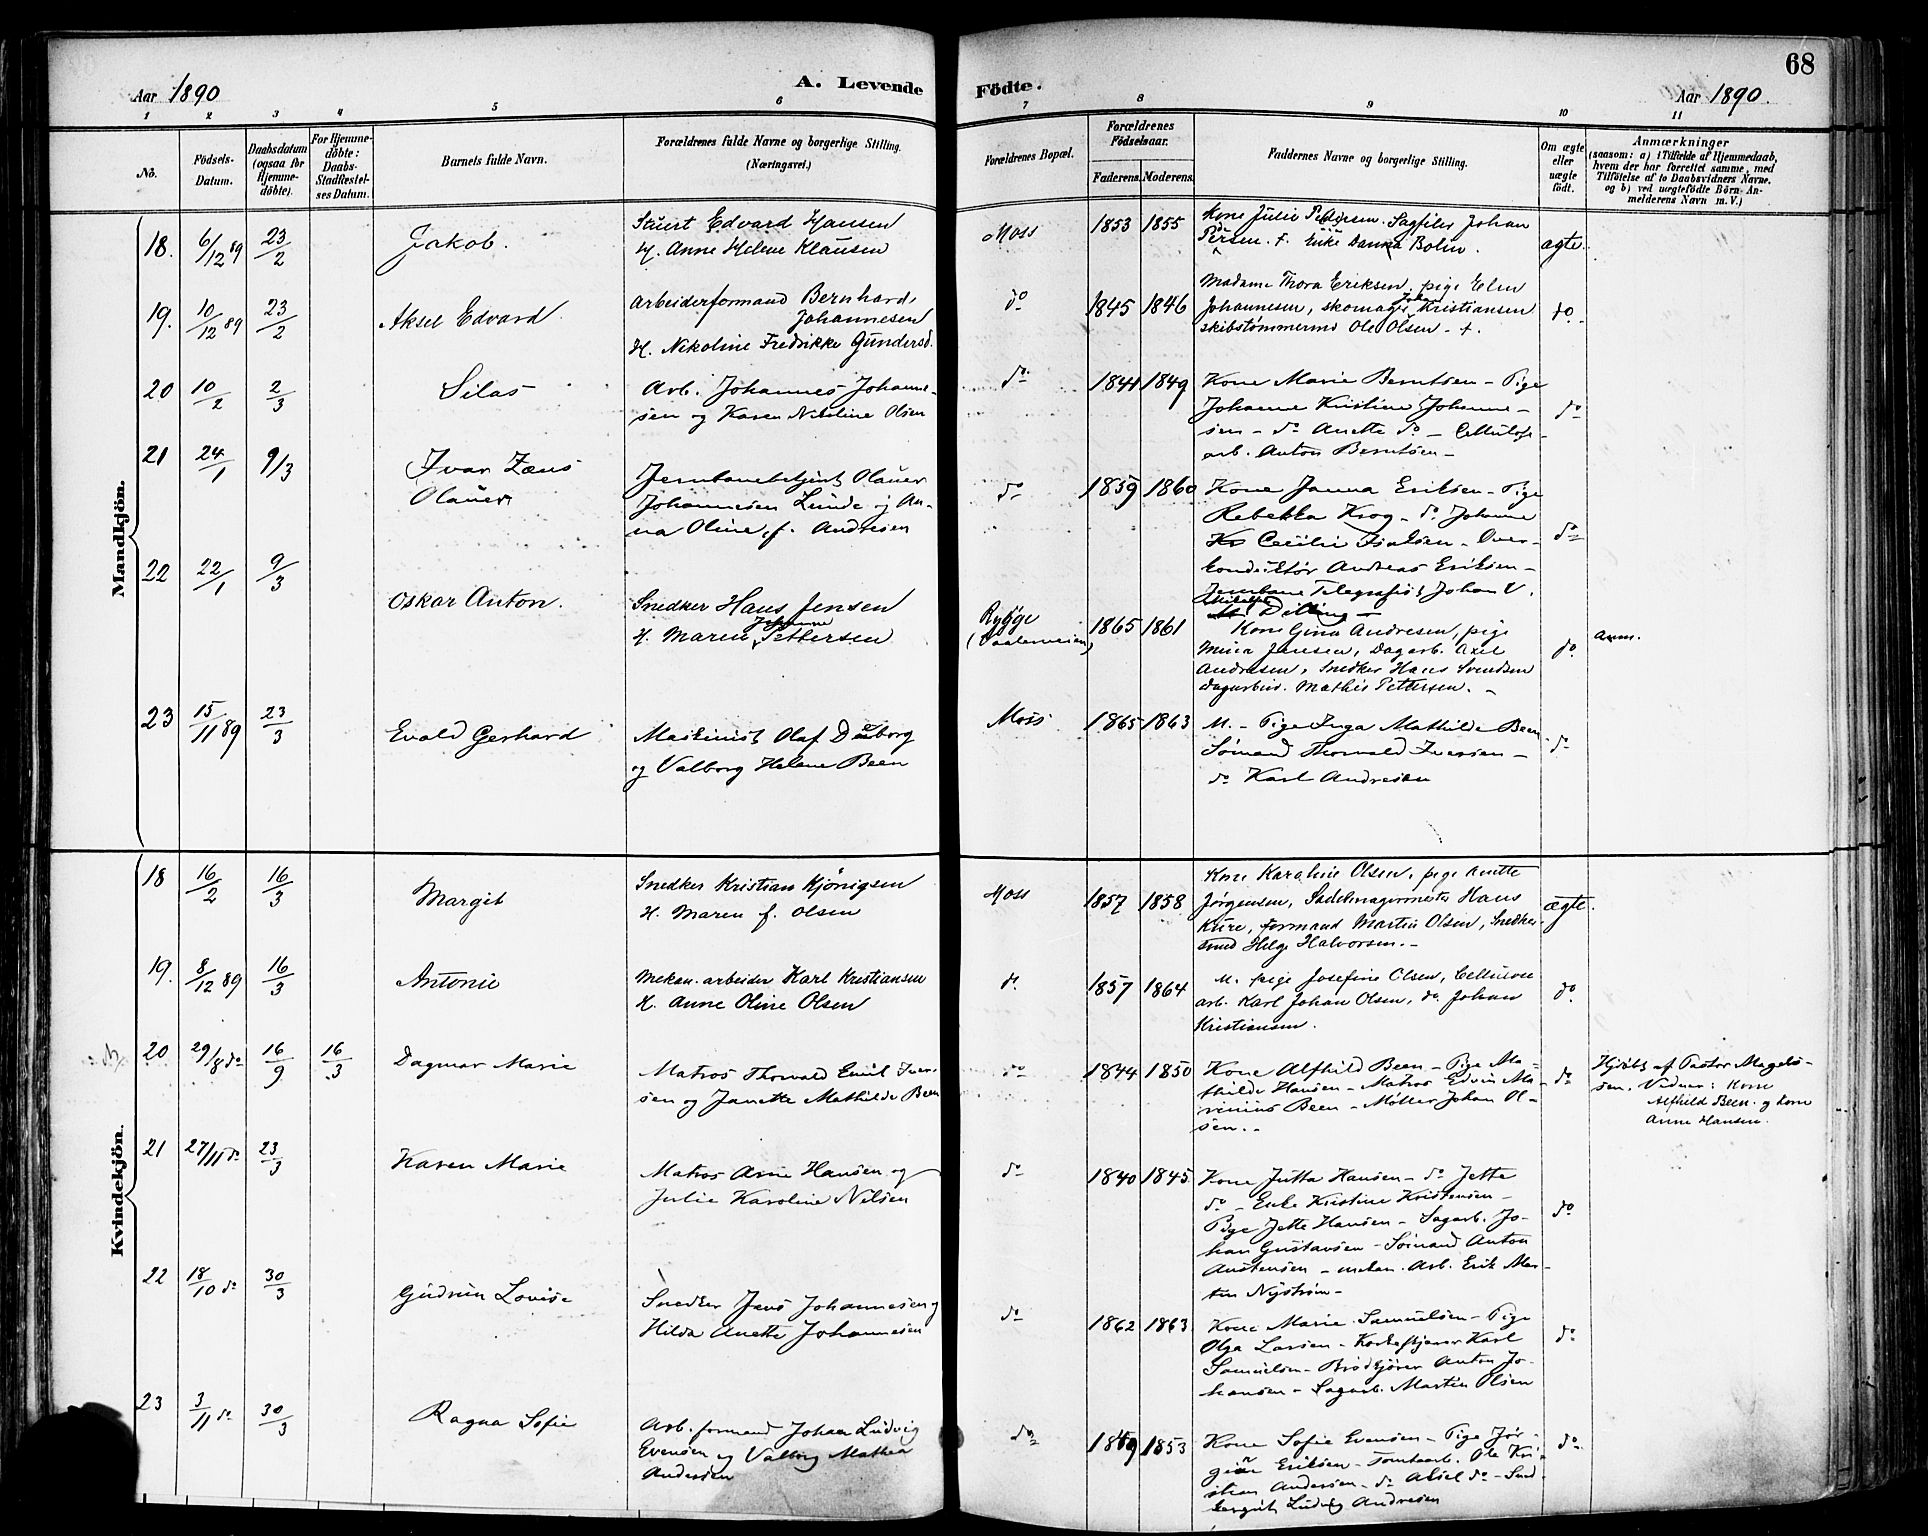 68
Aar 1890
A. Levende
Födte.
Aar 1890.
1 2 3 4 5 6 7 8 9 10 11
No.
Födsels-
Datum.
Daabsdatum
(ogsaa for
Hjemme-
döbte).
For Hjemme-
döbte:
Daabs-
Stadfæstel-
ses Datum.
Barnets fulde Navn.
Forældrenes fulde Navne og borgerlige Stilling.
(Næringsvei.)
Forældrenes Bopæl.
Forældrenes
Födselsaar.
Faderens. Moderens.
Faddernes Navne og borgerlige Stilling.
Om ægte
eller
uægte
födt.
Anmærkninger
(saasom: a) i Tilfælde af Hjemmedaab,
hvem der har forrettet samme, med
Tilföielse af to Daabsvidners Navne,
og b) ved uegtefödte Börn An-
melderens Navn m. V.)
Mandkjön.
18. 6/12 89 23/2 Jakob.
Stuert Edvard Hansen
H. Anne Helene Klausen
Moss 1853 1855
Kone Julie Pedersen. Sagfiler Johan
Persen. f. Enke Danna Bolin.
ægte.
19. 10/12 89 23/2 Aksel Edvard.
Arbeiderformand Bernhard
Johannesen
H. Nikoline Fredrikke Gundersd.
do 1845 1846
Madame Thora Eriksen, pige Elen
Johannesen, skomager Johan Kristiansen
skibstømmermd Ole Olsen - f.
do.
20 10/2 2/3 Silas
Arb. Johannes Johanne-
sen og Karen Nikoline Olsen
do 1844 1849
Kone Marie Berntsen - Pige
Johanne Kristine Johanne-
sen - do Anette do - Cellulose-
arb. Anton Berntsen -
do
21 24/1 9/3 Ivar Zæus
Olauer
Jernbanebetjent Olauer
Johannesen Lunde og An-
na Oline, f. Andresen
do 1859 1860
Kone Janna Eriksen - Pige
Rebekka Krog - do. Johanne
Cecilie Isaksen - Over-
konduktør Andreas Eriksen -
Jernbane Telegrafist Johan V.
Dilling -
do
22 22/1 9/3 Oskar Anton.
Snedker Hans Jensen
H. Maren Johanne Pettersen
Rygge
(Vaalerveien) 1865 1861
Kone Gina Andresen, pige
Mina Jensen, Dagarb. Axel
Andresen, Snedker Hans Svendsen
dagarbeid. Mathis Pettersen. -
do. Anm.
23 15/11 89 23/3 Evald Gerhard
Maskinist Olaf Dauborg
og Valborg Helene Been
Moss 1865 1863
M. - Pige Inga Mathilde Been
Sømand Thorvald Iversen -
do Karl Andresen
do
Kvindekjön.
18 16/2 16/3 Margit
Snedker Kristian Kjönigsen
H. Maren f. Olsen
Moss 1857 1858
Kone Karoline Olsen, pige Anette
Jørgensen, Sadelmagermester Hans
Kure, formand Martin Olsen, Snedker-
svend Helge Halvorsen. -
ægte.
19. 8/12 89 16/3 Antonie
Mekan. arbeider Karl Kristiansen
H. Anne Oline Olsen
do. 1857 1864
M. pige Josefine Olsen, Cellulose
arb. Karl Johan Olsen, do. Johan
Kristiansen.
do.
20 29/8 do 16/9 16/3 Dagmar Marie
Matros Thorvald Emil Iver-
sen og Janette Mathilde Been
do 1844 1850
Kone Alfhild Been - Pige Ma-
thilde Hansen - Matros Edvin Ma-
rinius Been - Møller Johan Ol-
sen. -
do
Hjdöbt af Pastor Magels-
sen. Vidner: Kone
Alfhild Been og Kone
Anne Hansen.
21 27/11 do 23/3 Karen Marie
Matros Arne Hansen og
Julie Karoline Nilsen
do 1840 1845
Kone Jutta Hansen - do Jette
do - Enke Kristine Kristensen -
Pige Jette Hansen - Sagarb. Jo-
han Gustavsen - Sømand Anton
Austensen - mekan. Arb. Erik Mar-
tin Nystrøm -
do
22 18/10 do 30/3 Gudrun Lovise
Snedker Jens Johannesen og
Hilda Anette Johannesen
do 1862 1863
Kone Marie Samuelsen - Pige
Olga Larsen - Samuelsen - Brødkjører Anton Jo-
hansen - Sagarb. Martin Olsen
do
23 3/11 do 30/3 Ragna Sofie
Arb. formand Johan Ludvig
Evensen og Valborg Mathea
Andersen
do 1849 1853
Kone Sofie Evensen - Pige Jør-
gine Eriksen - Tomtearb. Ole Kri-
stian Andersen - do Aksel do - Ludvig Andresen
do